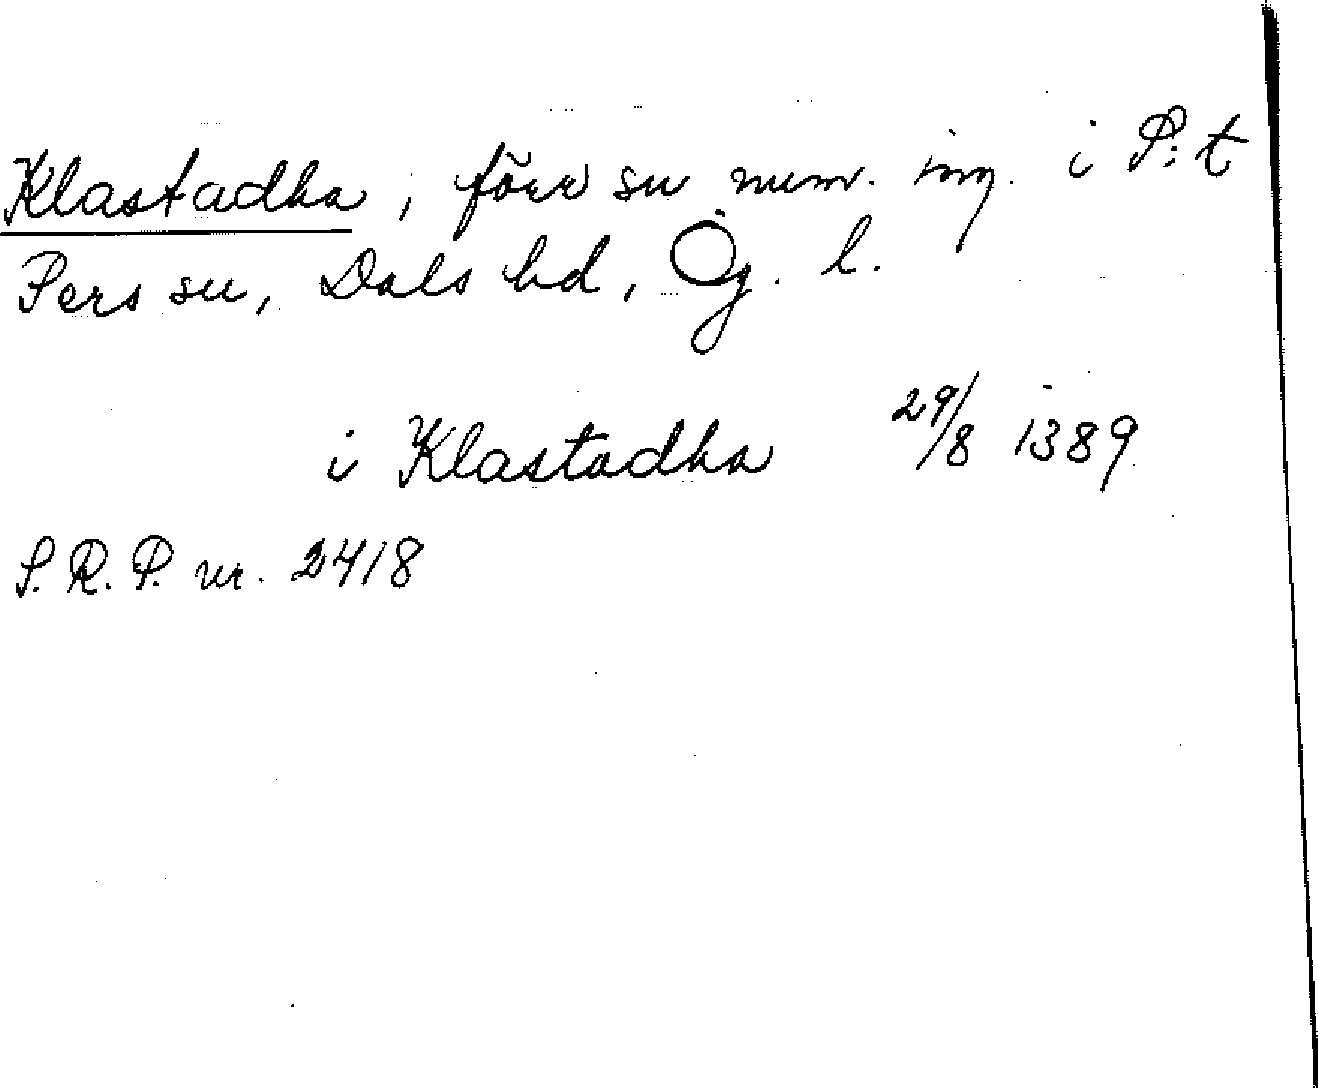 Klastadha, förr sn num. ing. i S:t
Pers sn, Dals hd, Ög. l.
i Klastadha 29/8 1389
S.R.P. nr. 2418